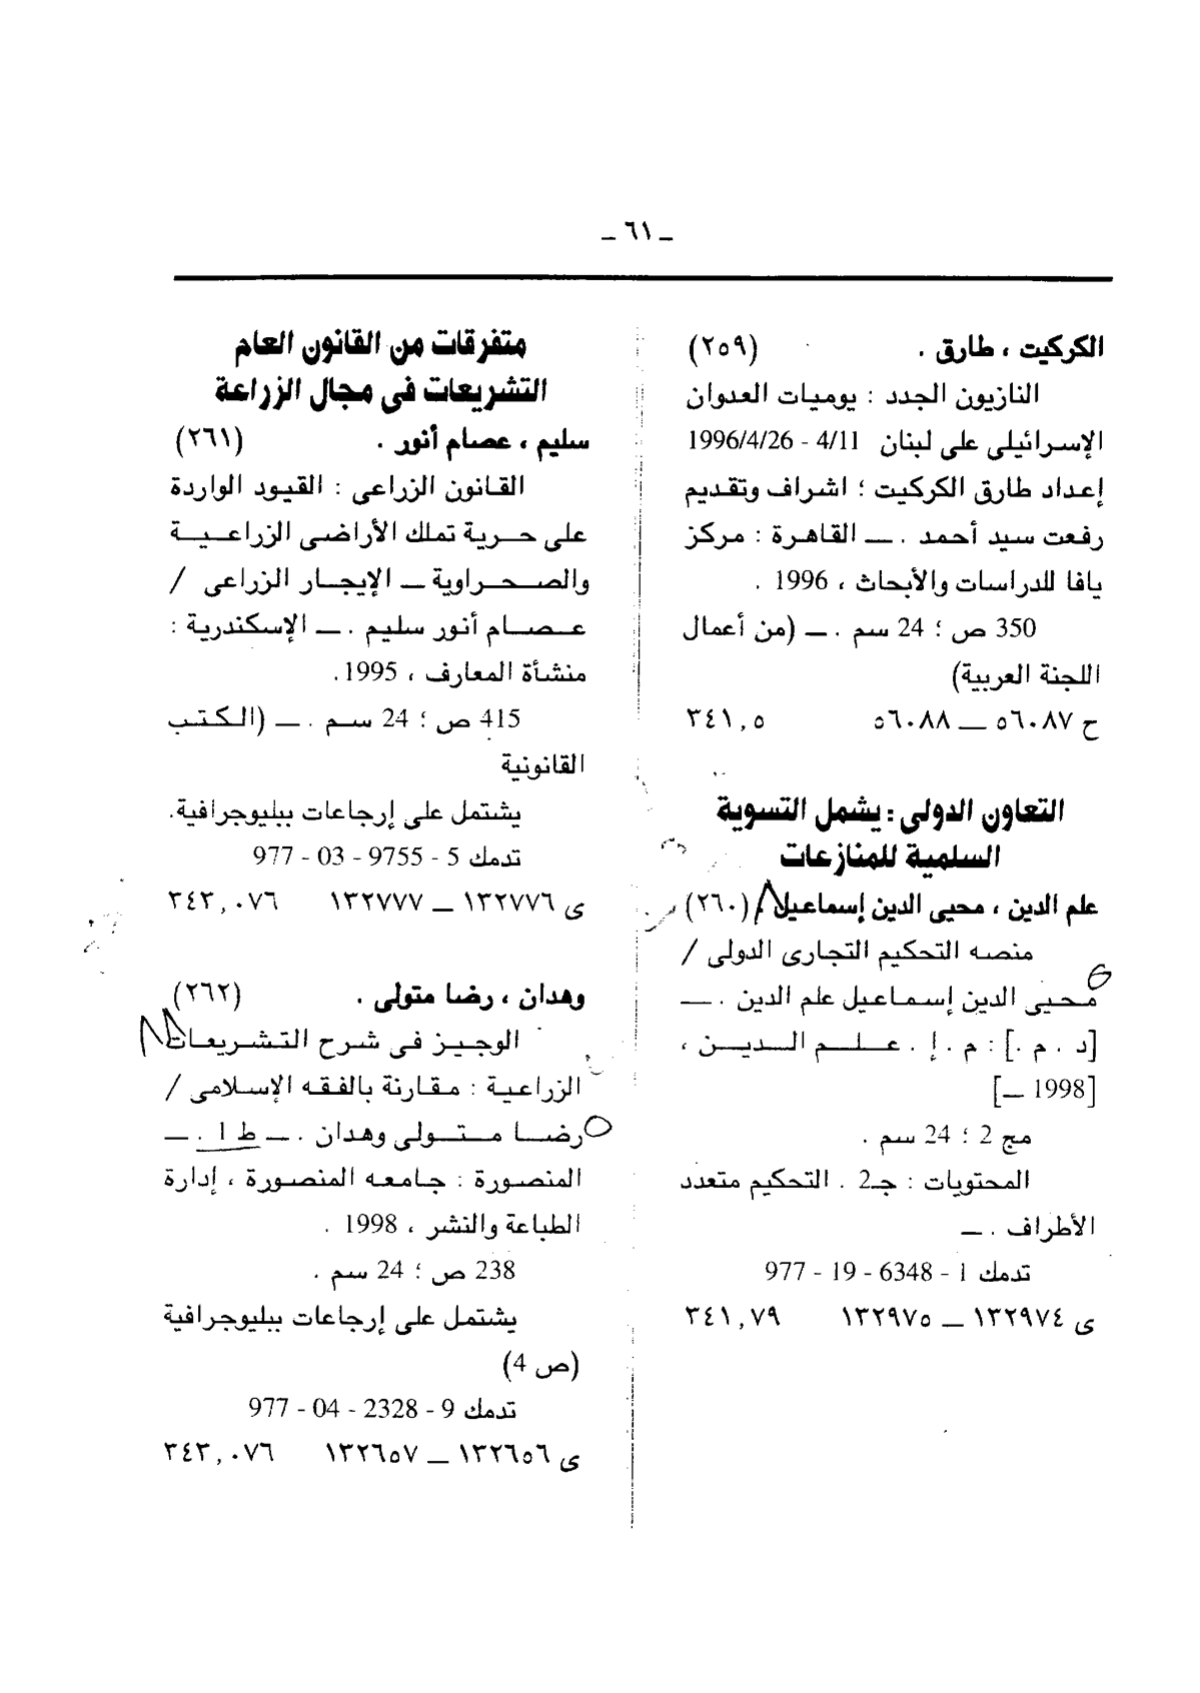 ـ ٦١ ـ
الكركيت ، طارق . (٢٥٩)
النازيون الجدد : يوميات العدوان
الإسرائيلى على لبنان 4/11 - 1996/4/26
إعداد طارق الكركيت ؛ اشراف وتقديم
رفعت سيد أحمد . ــ القاهرة : مركز
يافا للدراسات والأبحاث ، 1996 .
350 ص ؛ 24 سم . ــ (من أعمال
اللجنة العربية)
ح ٥٦٠٨٧ ــ ٥٦٠٨٨ ٣٤١,٥
التعاون الدولى : يشمل التسوية
السلمية للمنازعات
علم الدين ، محيى الدين إسماعيل . (٢٦٠)
منصه التحكيم التجارى الدولى /
محيى الدين إسماعيل علم الدين . ــ
[د . م .] : م . إ . علم الدين ،
[1998 ــ]
مج 2 ؛ 24 سم .
المحتويات : جـ2 . التحكيم متعدد
الأطراف . ــ
تدمك 1 - 6348 - 19 - 977
ى ١٣٢٩٧٤ ــ ١٣٢٩٧٥ ٣٤١,٧٩
متفرقات من القانون العام
التشريعات فى مجال الزراعة
سليم ، عصام أنور . (٢٦١)
القانون الزراعى : القيود الواردة
على حرية تملك الأراضى الزراعية
والصحراوية ــ الإيجار الزراعى /
عصام أنور سليم . ــ الإسكندرية :
منشأة المعارف ، 1995.
415 ص ؛ 24 سم . ــ (الكتب
القانونية
يشتمل على إرجاعات ببليوجرافية.
تدمك 5 - 9755 - 03 - 977
ى ١٣٢٧٧٦ ــ ١٣٢٧٧٧ ٣٤٣,٠٧٦
وهدان ، رضا متولى . (٢٦٢)
الوجيز فى شرح التشريعات
الزراعية : مقارنة بالفقه الإسلامى /
رضا متولى وهدان . ــ ط 1 . ــ
المنصورة : جامعه المنصورة ، إدارة
الطباعة والنشر ، 1998 .
238 ص ؛ 24 سم .
يشتمل على إرجاعات ببليوجرافية
(ص 4)
تدمك 9 - 2328 - 04 - 977
ى ١٣٢٦٥٦ ــ ١٣٢٦٥٧ ٣٤٣,٠٧٦